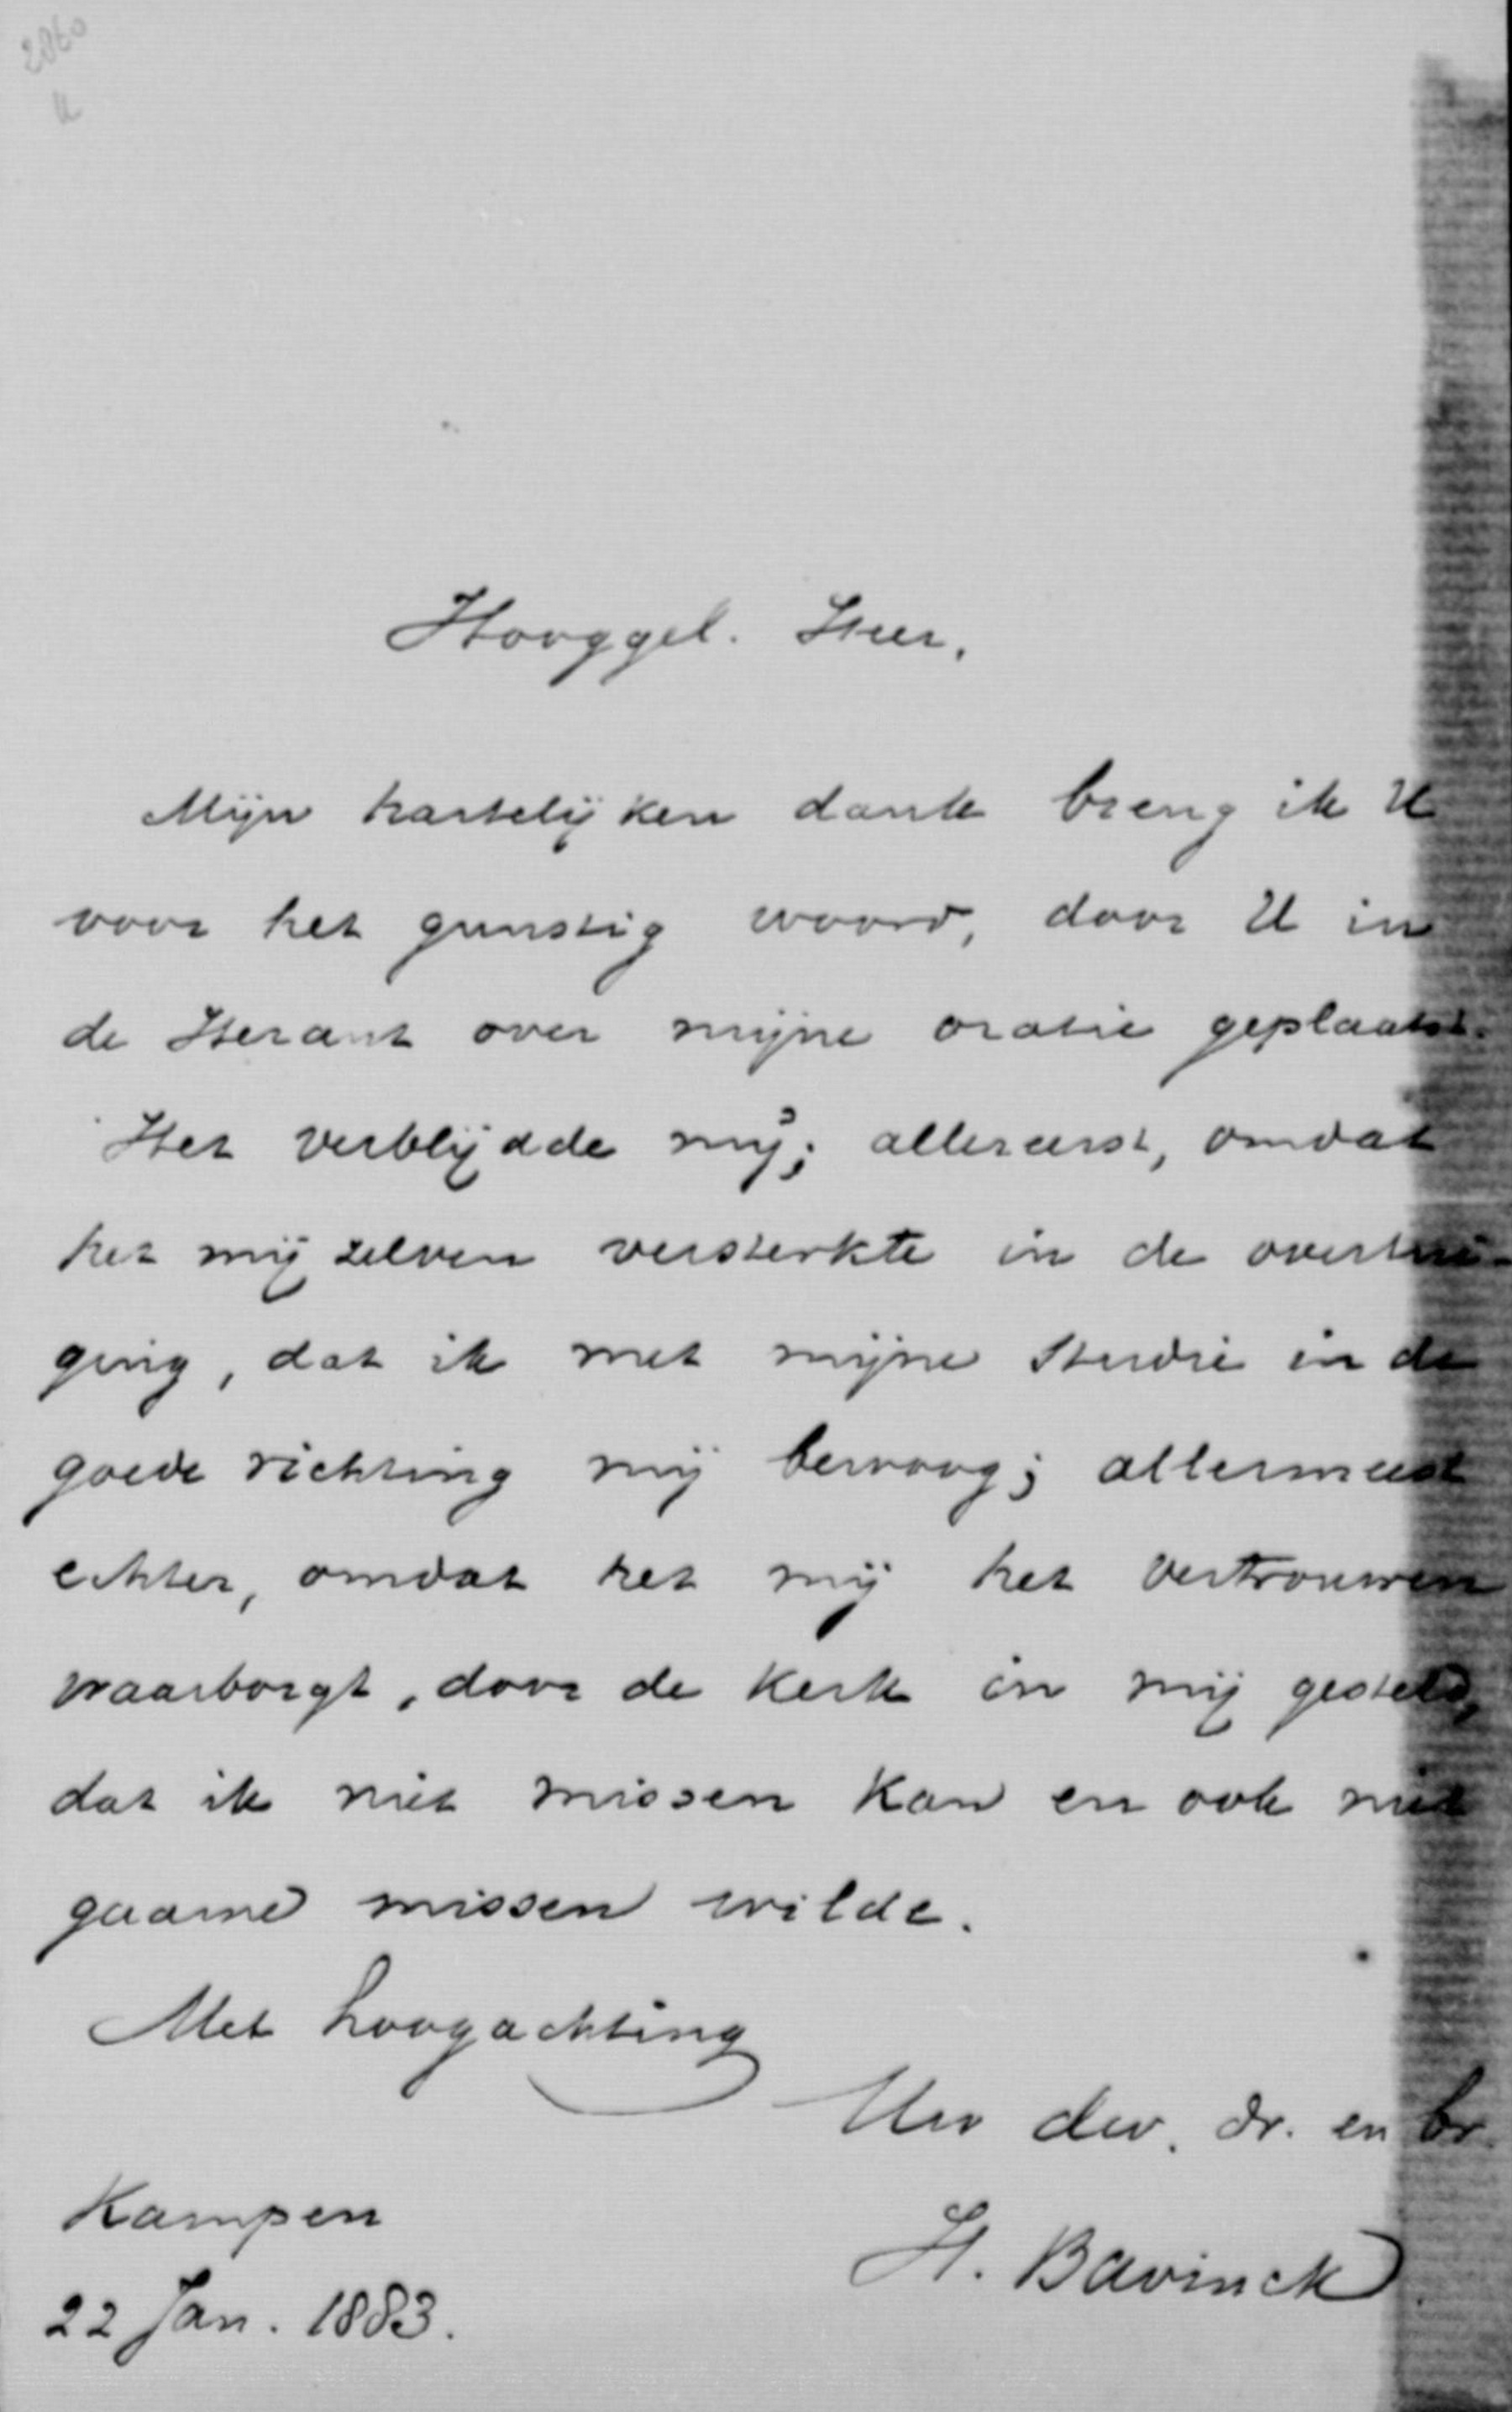 2860
Hooggel. Heer,
Mijn hartelijken dank breng ik U
voor het gunstig woord, door U in
de Heraut over mijne oratie geplaatst.
Het verblijdde mij; allereerst, omdat
het mij zelven versterkte in de overtui-
ging, dat ik met mijne studie in de
goede richting mij bewoog; allermeest
echter, omdat het mij het vertrouwen
waarborgt, door de Kerk in mij gesteld,
dat ik niet missen kan en ook niet
gaarne missen wilde.
Met hoogachting
Uw dw. dr. en br.
Kampen
H. Bavinck
22 Jan. 1883.